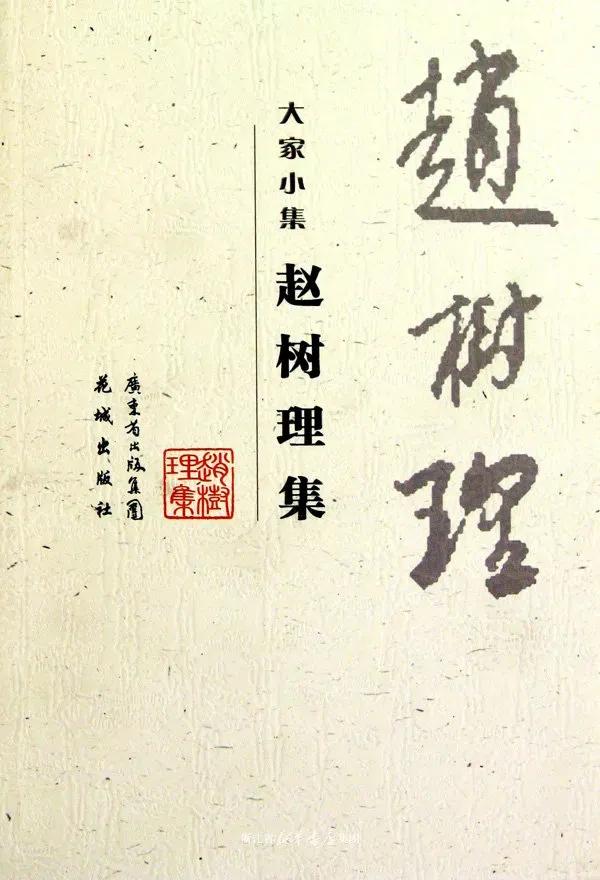 趙樹理
大家小集
赵树理集
趙樹
理集
廣東省出版集團
花城出版社
浙江省新华书店集团